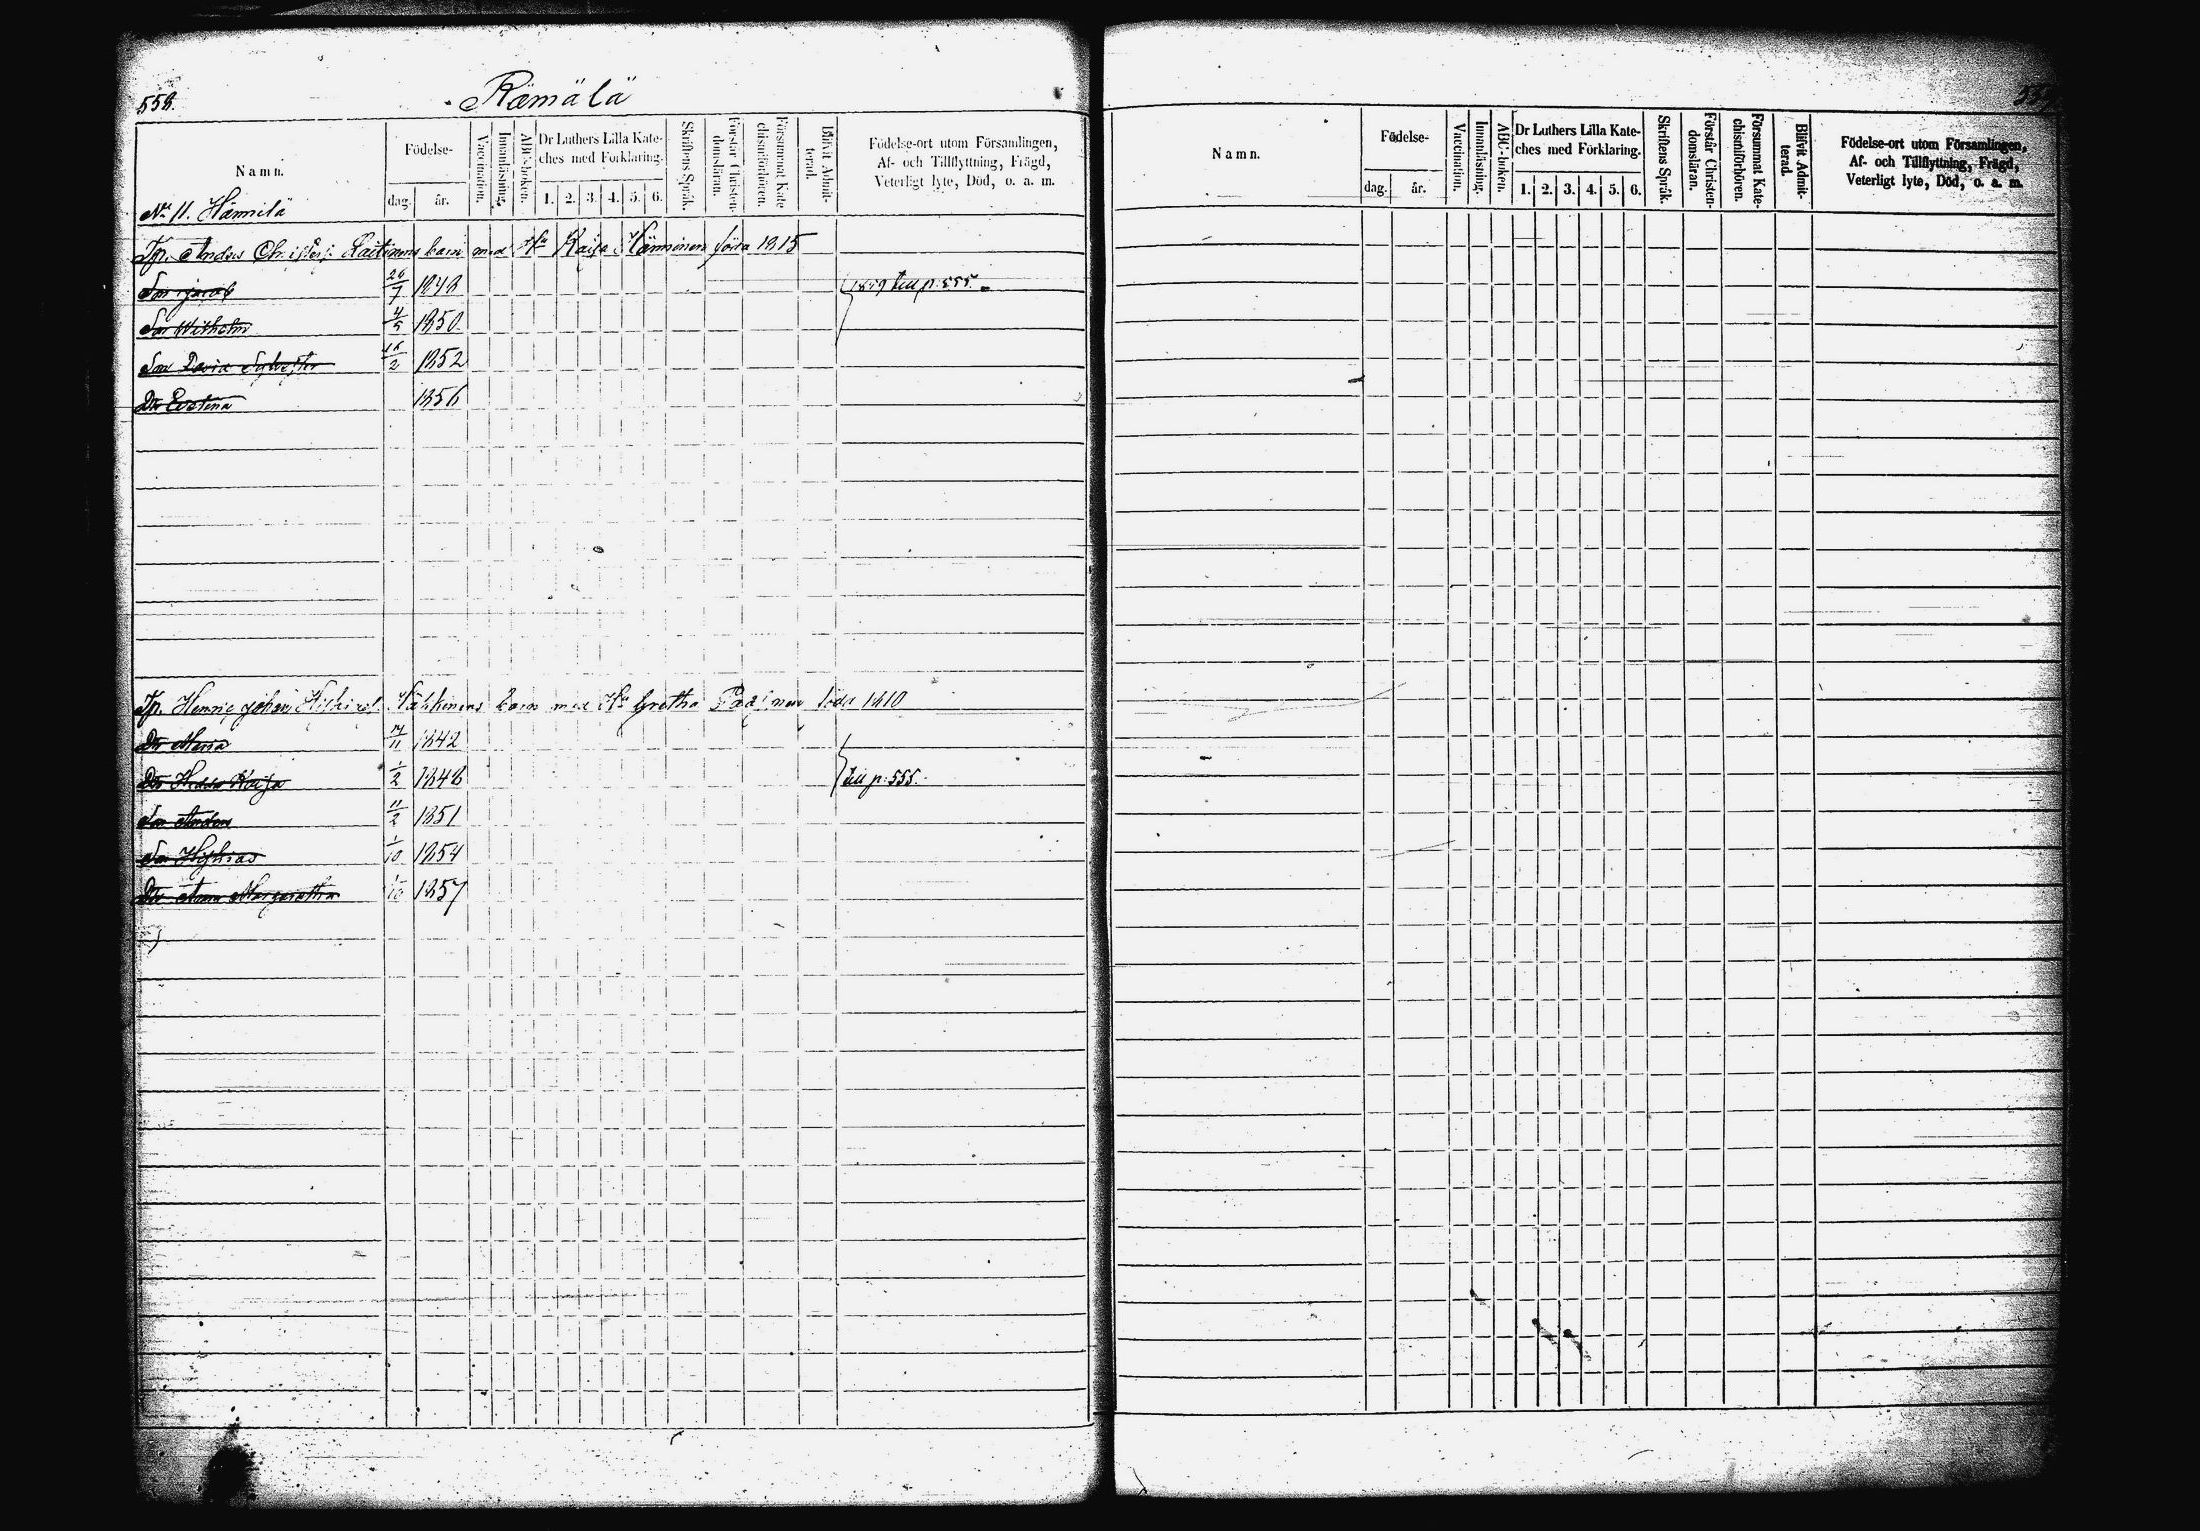 558.
Rämälä
Namn.
Födelse-
dag. år.
Vaccination.
Innanläsning.
ABC-boken.
Dr Luthers Lilla Kate-
ches med Förklaring.
1. 2. 3. 4. 5. 6.
Skriftens Språk.
Förstår Christen-
domsläran.
Försummat Kate-
chismiförhören.
Blifvit Admit-
terad.
Födelse-ort utom Församlingen,
Af- och Tillflyttning, Frägd,
Veterligt lyte, Död, o. a. m.
No 11. Hännilä
Tp. Anders Barn med Hu Kaisa Hänninen föda 1815
Son Jacob 26/7 1848 1859 till p. 555.
Son Wilhelm 4/5 1850
Son David Sylvester 16/2 1852
Dtr Evelina 1856
Tp. Henric Johan barn med Hu Gretha föda 1810
Dtr Maria 14/11 1842
Dtr Hedda Kaisa 1/2 1848 till p. 555.
Son Anders 11/2 1851
Son 1/10 1854
Dtr Anna Margaretha 1/10 1857
Namn.
Födelse-
dag. år.
Vaccination.
Innanläsning.
ABC-boken.
Dr Luthers Lilla Kate-
ches med Förklaring.
1. 2. 3. 4. 5. 6.
Skriftens Språk.
Förstår Christen-
domsläran.
Försummat Kate-
chismiförhören.
Blifvit Admit-
terad.
Födelse-ort utom Församlingen,
Af- och Tillflyttning, Frägd,
Veterligt lyte, Död, o. a. m.